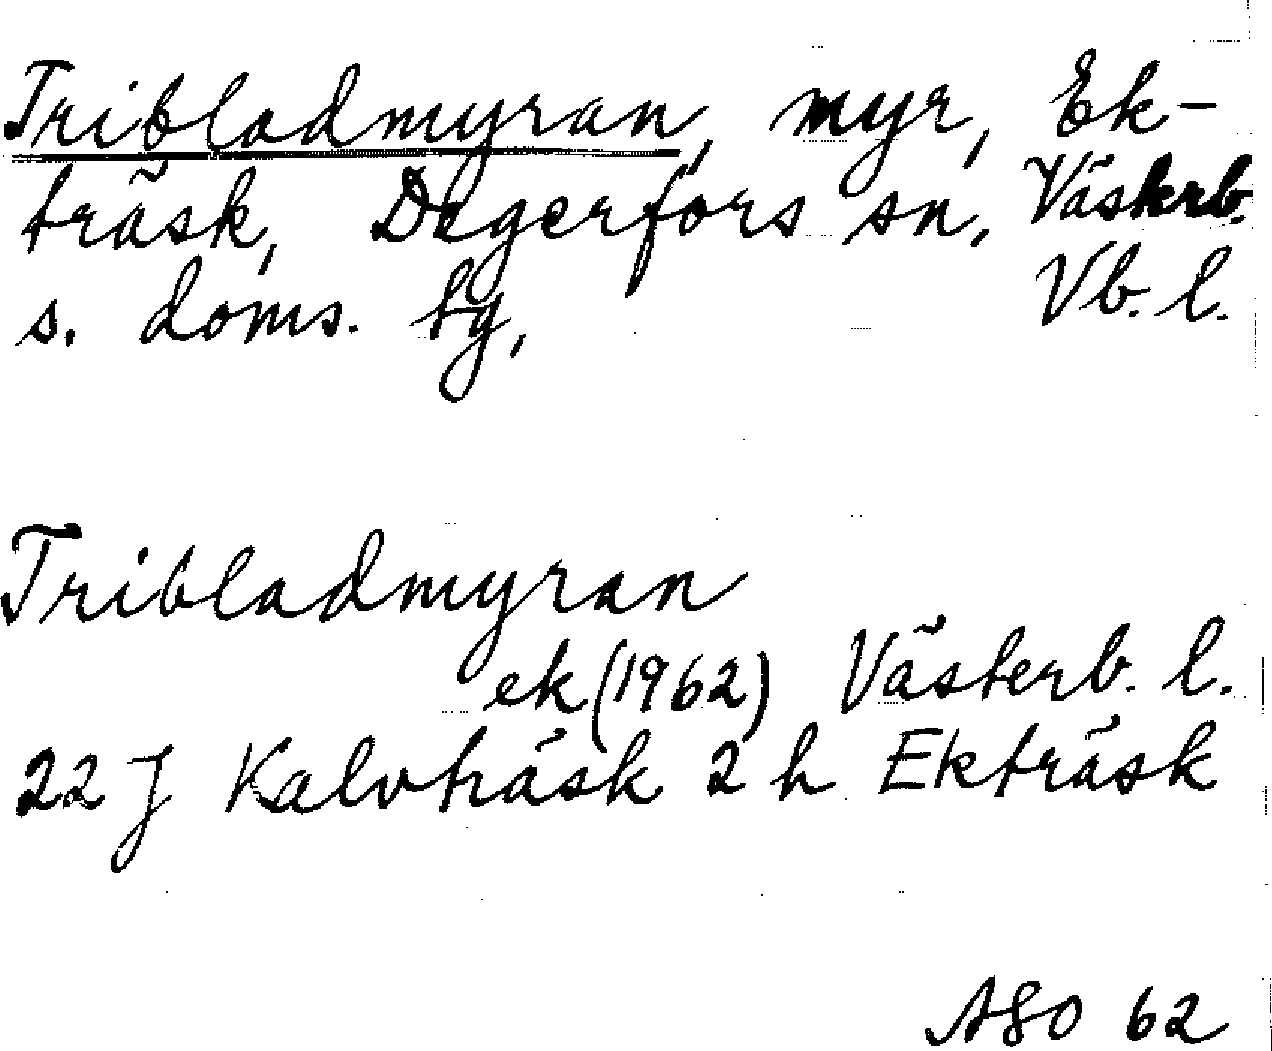 Tribladmyran, myr, Ek-
träsk, Degerfors sn, Västerb.
s. doms. bg, Vb. l.
Tribladmyran
ek (1962) Västerb. l.
22 J Kalvträsk 2 h Ekträsk
ASO 62